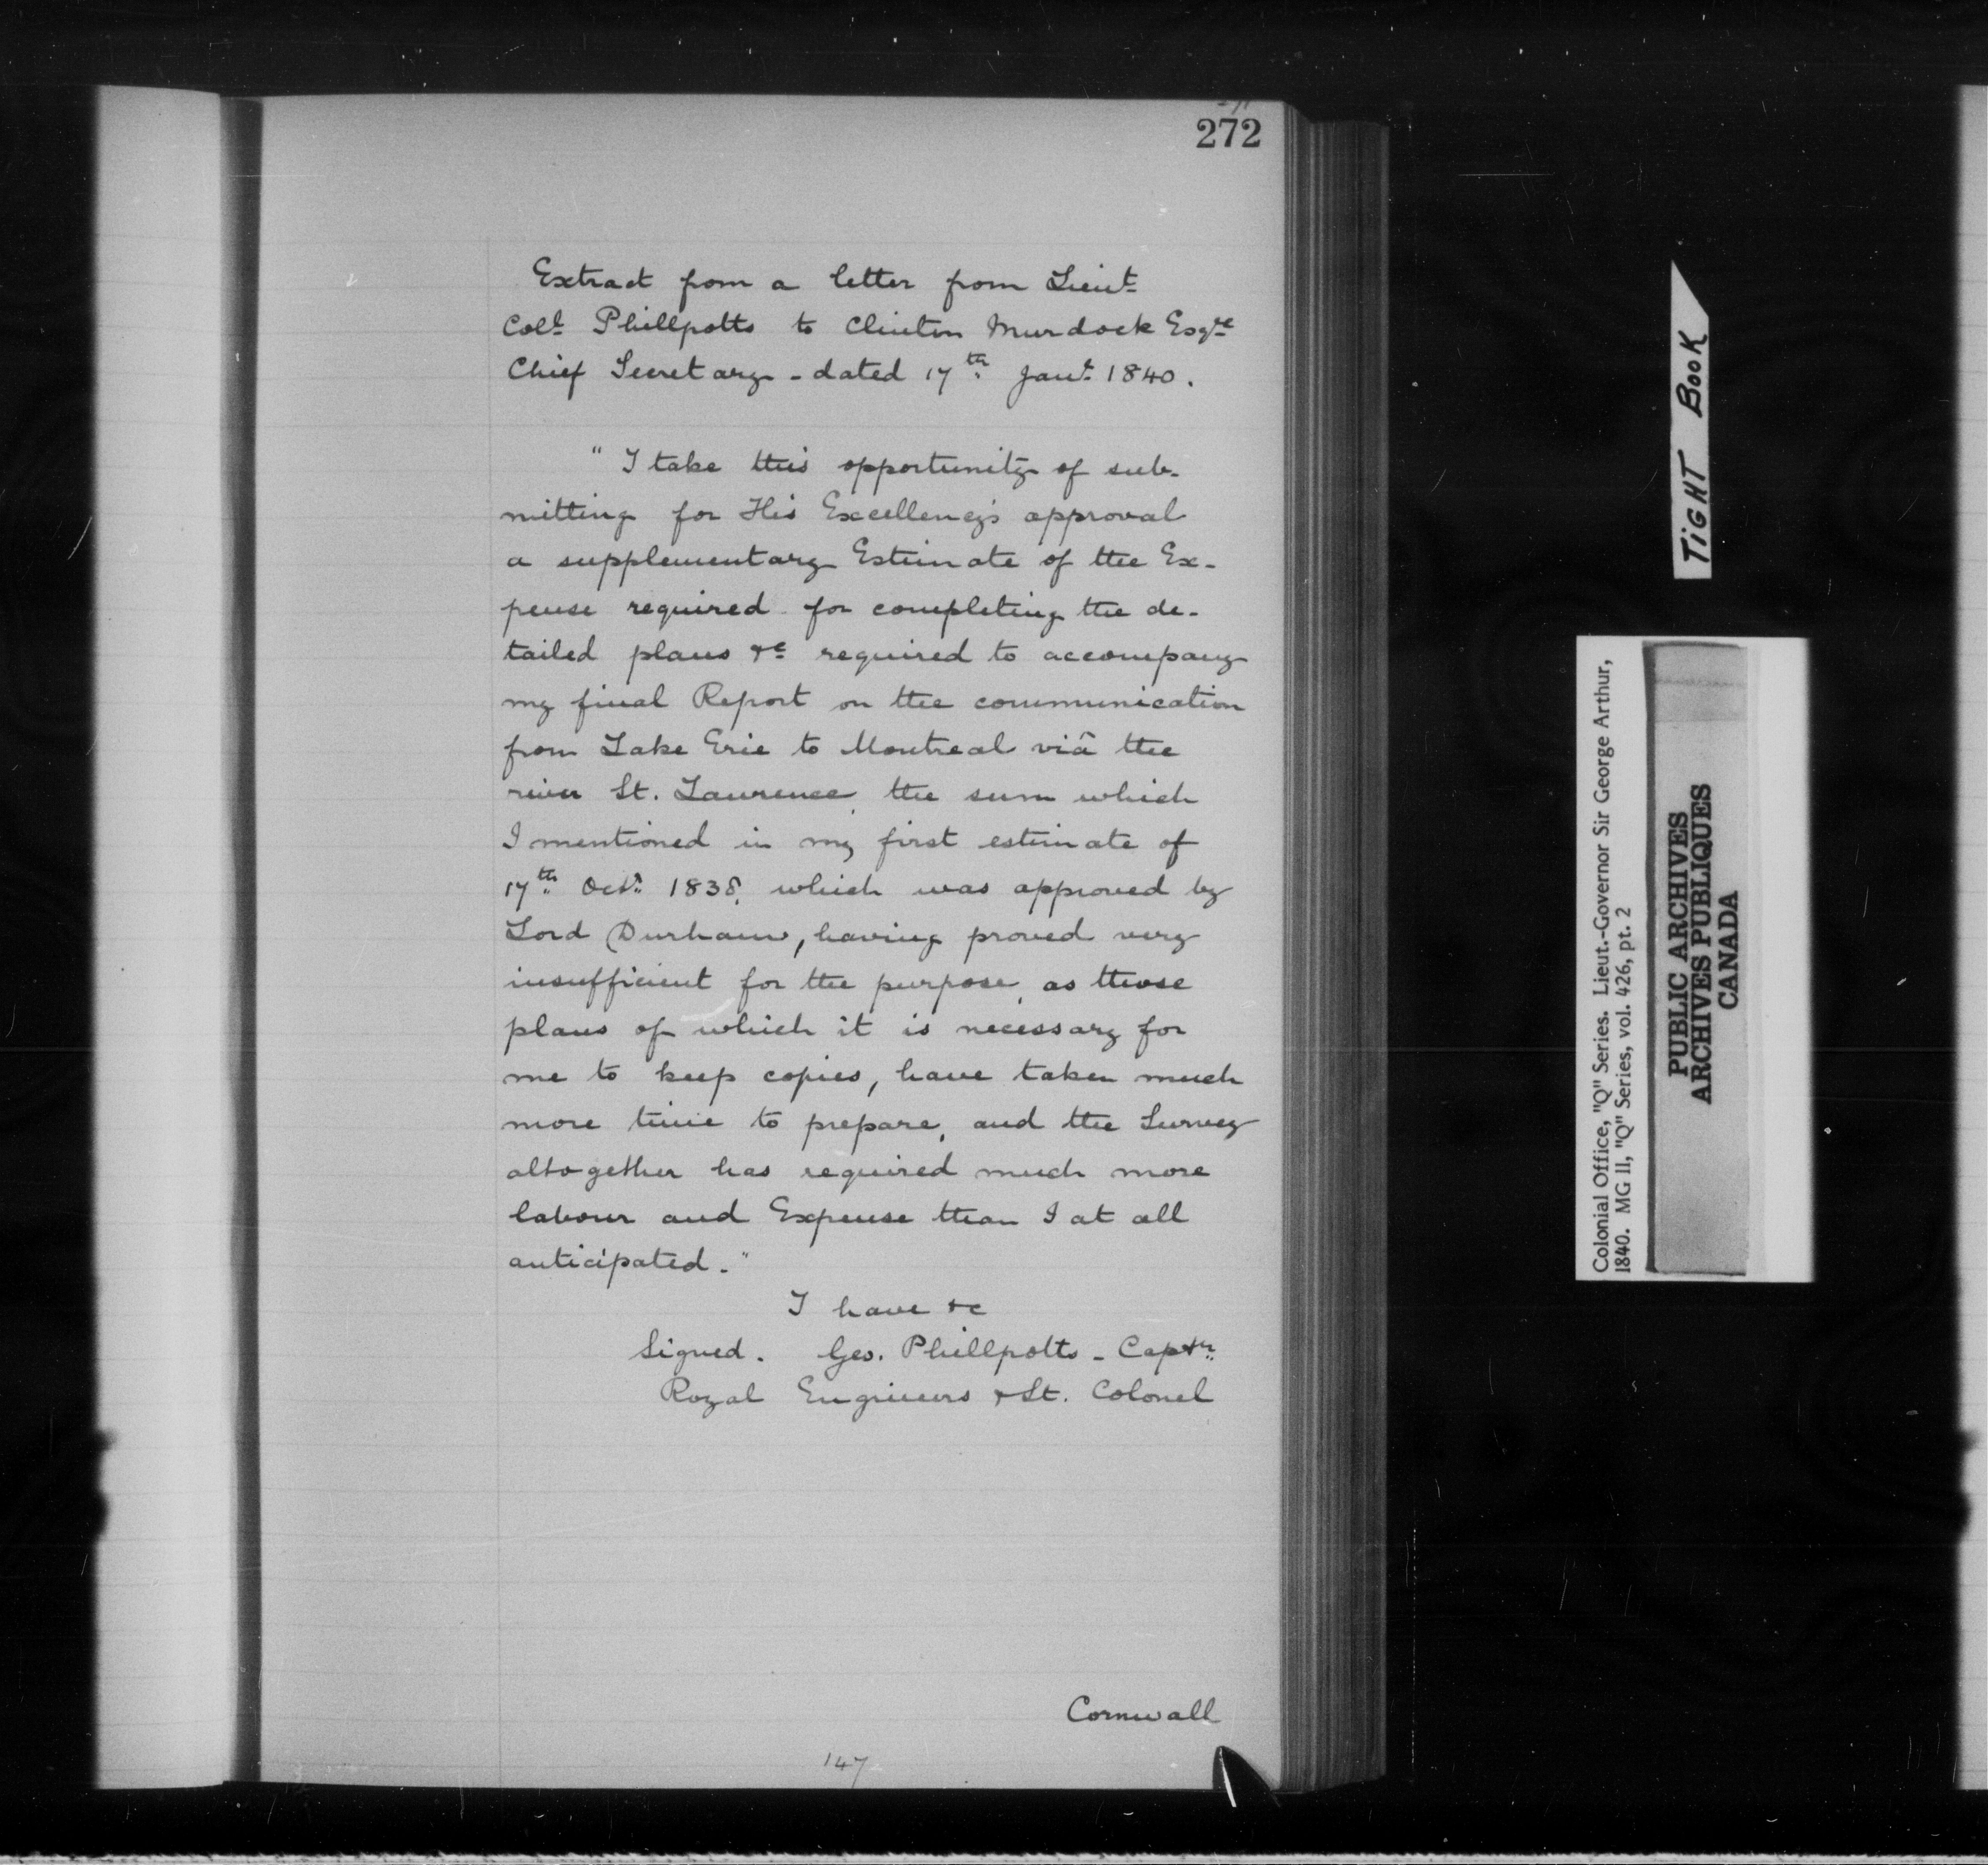 272
Extract from a letter from Lieut
Coll Phillpotts to Clinton Murdock Esqre
Chief Secretary - dated 17th Jany 1840.
" I take this opportunity of sub-
mitting for His Excellency's approval
a supplementary Estimate of the Ex-
pense required for completing the de-
tailed plans &c required to accompany
my final Report on the communication
from Lake Erie to Montreal viâ the
river St. Lawrence, the sum which
I mentioned in my first estimate of
17th Octr 1838, which was approved by
Lord Durham, having proved very
insufficient for the purpose, as those
plans of which it is necessary for
me to keep copies, have taken much
more time to prepare, and the Survey
altogether has required much more
labour and Expense than I at all
anticipated."
I have &c
Signed. Geo. Phillpotts - Captn
Royal Engineers & Lt. Colonel
Cornwall
147
TiGHT BooK
Colonial Office, "Q" Series. Lieut.-Governor Sir George Arthur,
1840. MG 11, "Q" Series, vol. 426, pt. 2
PUBLIC ARCHIVES
ARCHIVES PUBLIQUES
CANADA